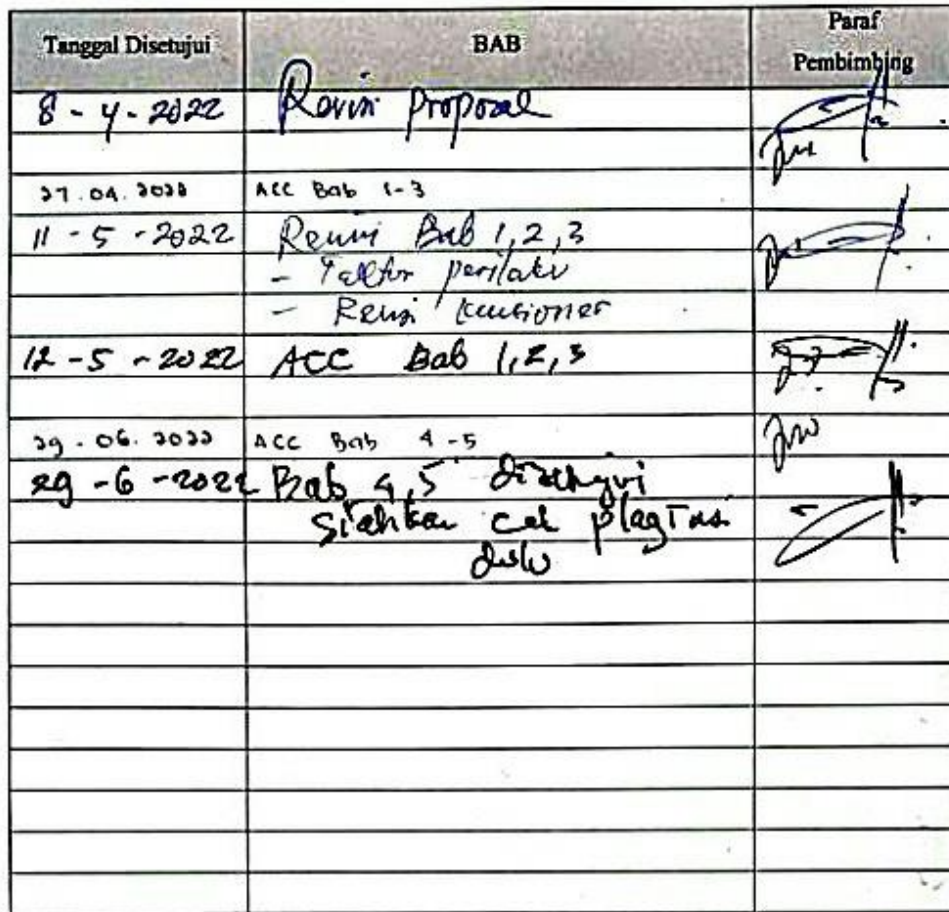 Tanggal Disetujui BAB Paraf Pembimbing
8 - 4 - 2022 Revisi Proposal
27.04.2022 ACC Bab 1-3
11 - 5 - 2022 Revisi Bab 1,2,3
- Faktor perilaku
- Revisi kuesioner
12 - 5 - 2022 ACC Bab 1,2,3
29.06.2022 ACC Bab 4-5
29 - 6 - 2022 Bab 4,5 disetujui
silahkan cek plagiasi
dulu